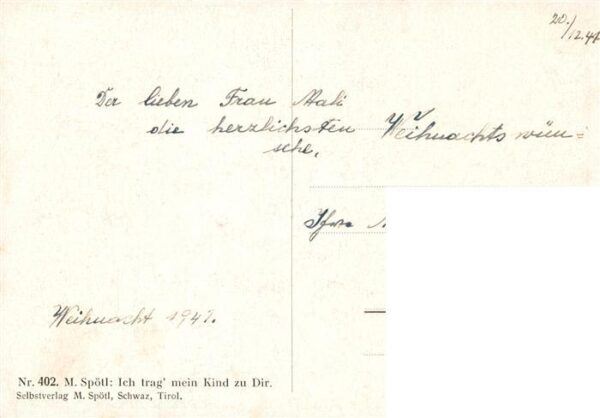 20./12.47
Der lieben Frau Mali
die herzlichsten Weihnachtswün=
sche.
Ihre
Weihnacht 1947.
Nr. 402. M. Spötl: Ich trag' mein Kind zu Dir.
Selbstverlag M. Spötl, Schwaz, Tirol.